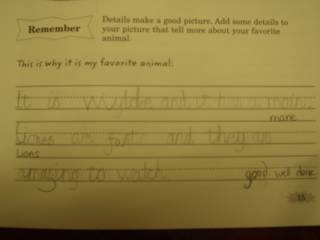 Remember
Details make a good picture. Add some details to
your picture that tell more about your favorite
animal.
This is why it is my favorite animal:
It is and it has a main.
mane
Liones are fast and they are
Lions
amazing to watch
good well done